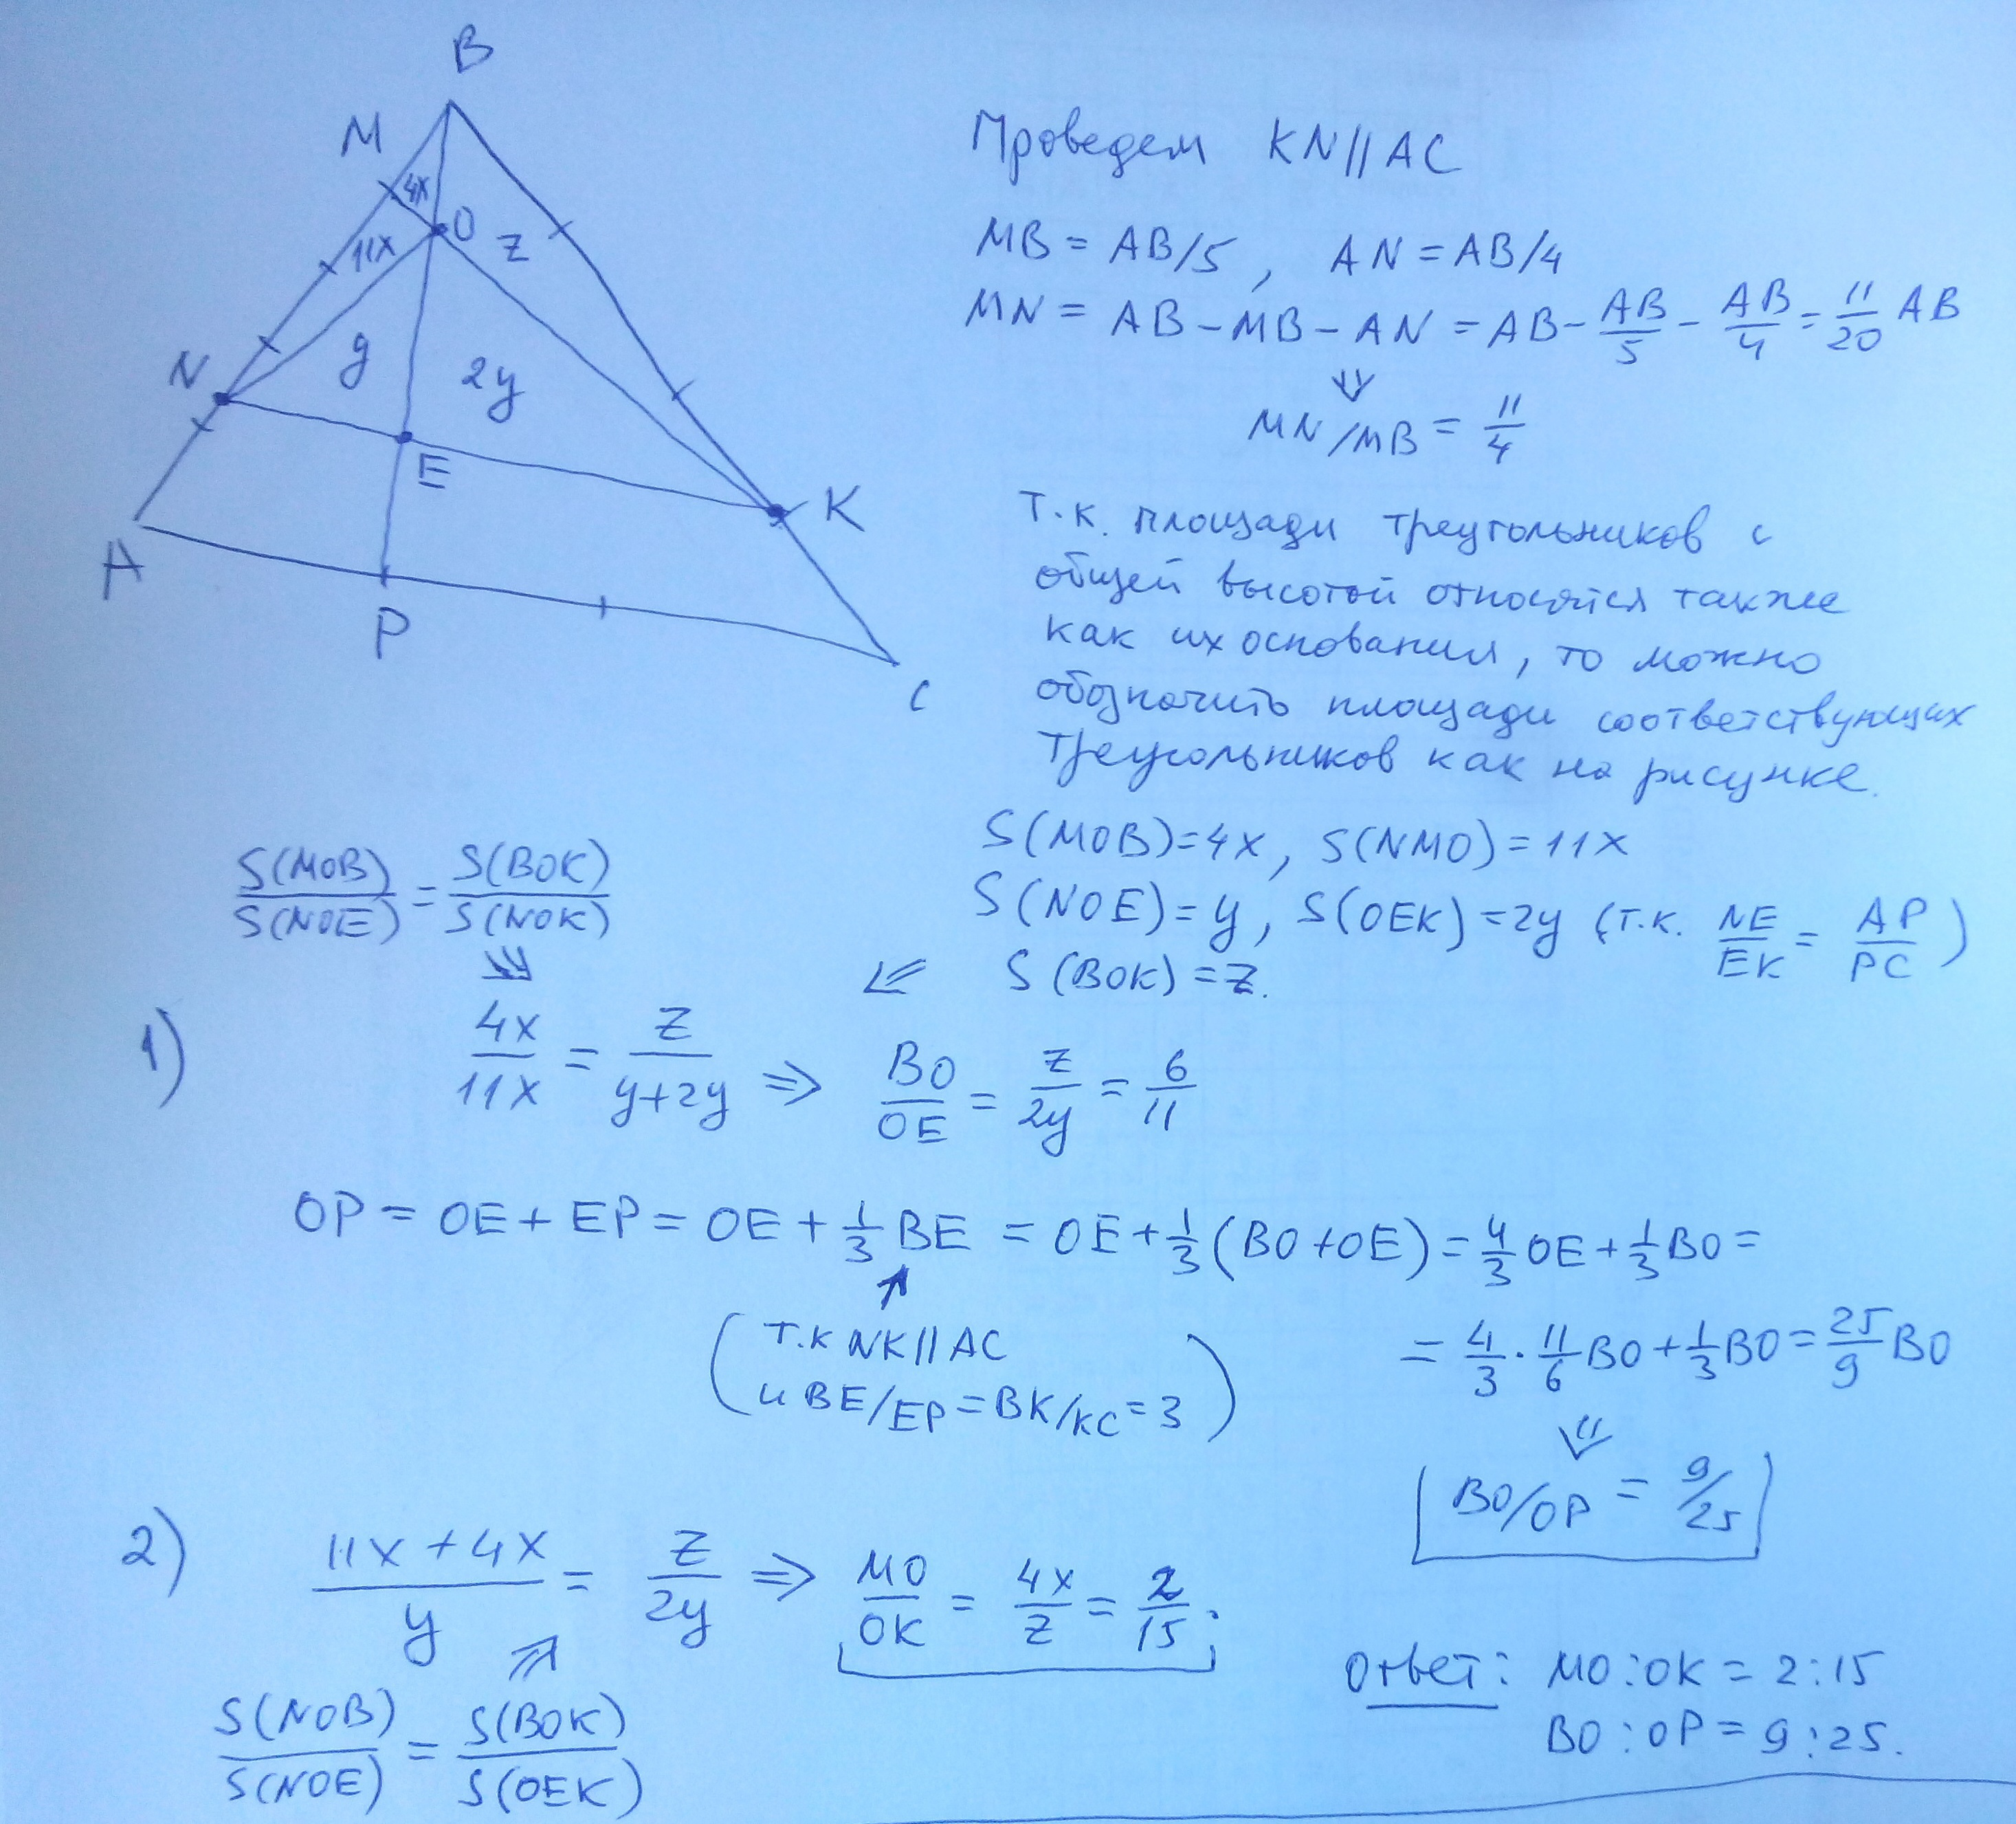 B
M
4x
O
z
11x
N
y
2y
E
K
A
P
C
Проведем KN||AC
MB = AB/5, AN = AB/4
MN = AB - MB - AN = AB - AB/5 - AB/4 = 11/20 AB
⇓
MN/MB = 11/4
Т.к. площади треугольников с
общей высотой относятся также
как их основания, то можно
обозначить площади соответствующих
треугольников как на рисунке.
S(MOB)=4x, S(NMO)=11x
S(NOE)=y, S(OEK)=2y (т.к. NE/EK = AP/PC)
⇐ S(BOK)=z.
S(MOB)/S(NOE) = S(BOK)/S(NOK)
⇓
1) 4x/11x = z/(y+2y) ⇒ BO/OE = z/2y = 6/11
OP = OE + EP = OE + 1/3 BE = OE + 1/3 (BO + OE) = 4/3 OE + 1/3 BO =
(т.к NK||AC
и BE/EP = BK/KC = 3)
= 4/3 · 11/6 BO + 1/3 BO = 25/9 BO
⇓
BO/OP = 9/25
2) (11x + 4x)/y = z/2y ⇒ MO/OK = 4x/z = 2/15.
S(NOB)/S(NOE) = S(BOK)/S(OEK)
Ответ: MO:OK = 2:15
BO:OP = 9:25.